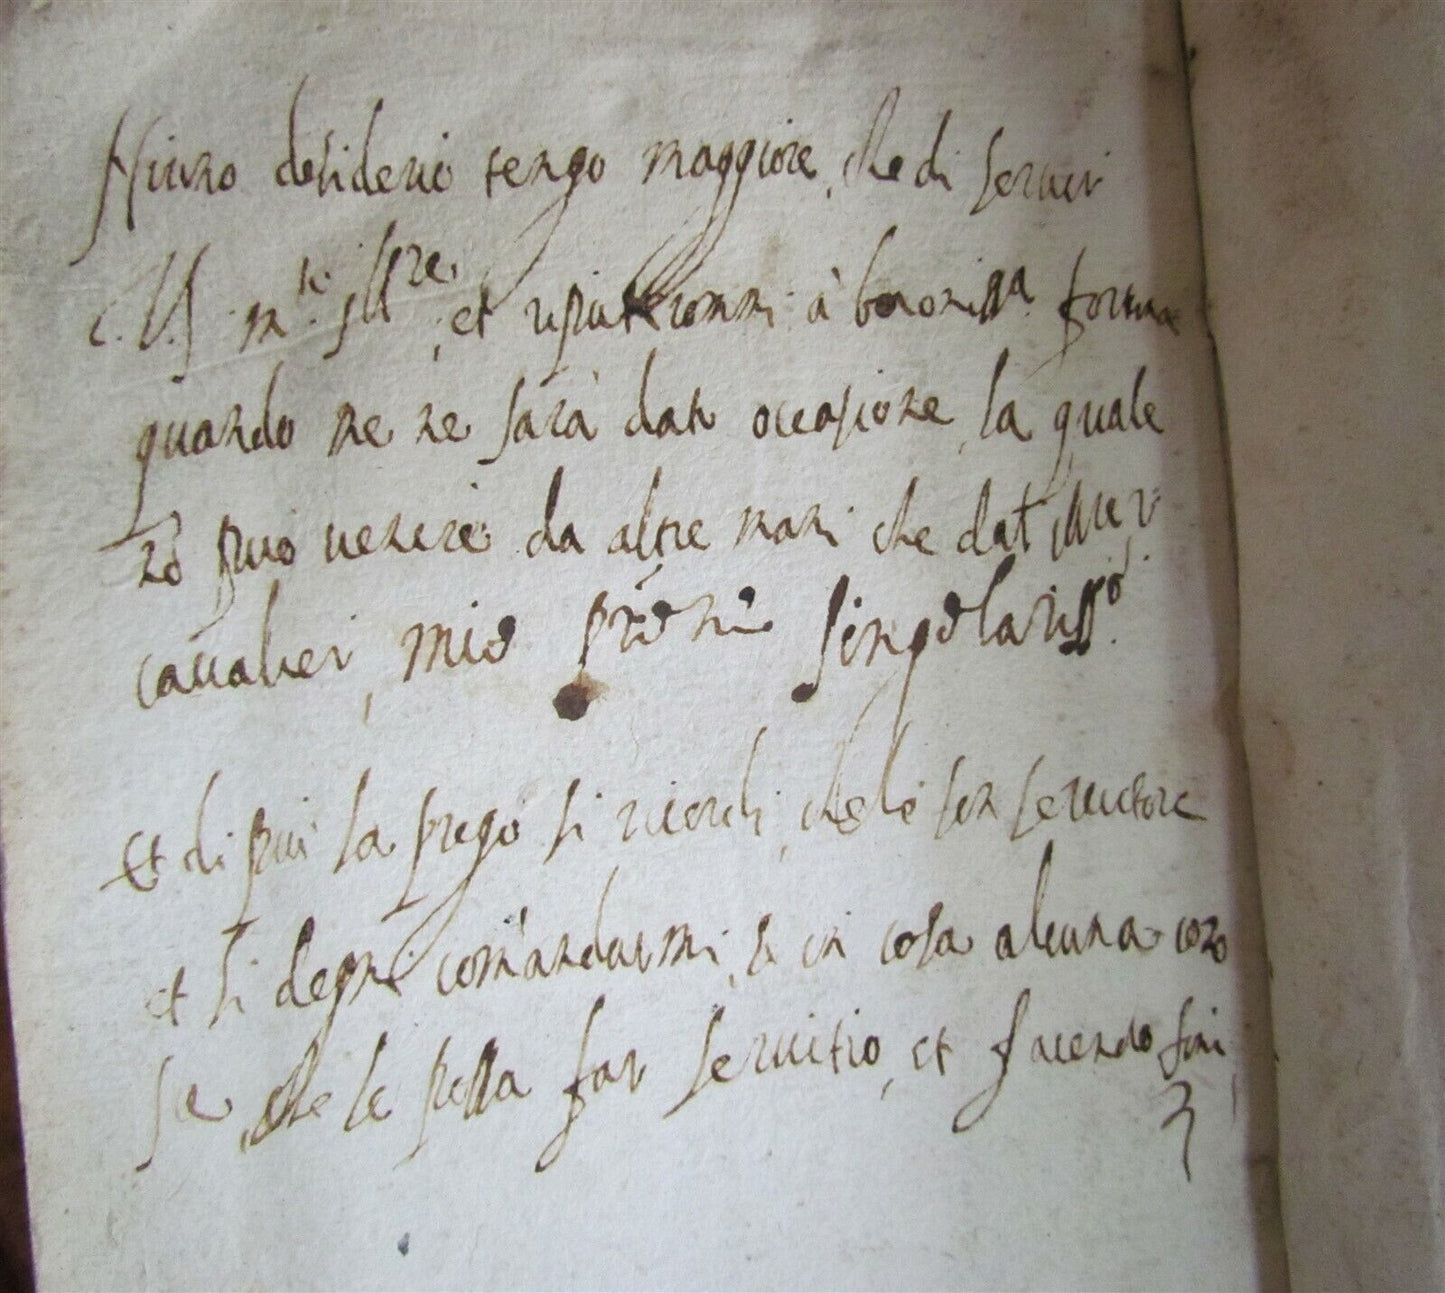 Niuno desiderio tengo maggiore, che di seruir
V.S. m.to Ill.re, et riputerommi à bonoriss.a fortuna
quando me ne sarà data occasione, la quale
nō può uenire da altre mani che dal
caualier, mio prōne singolariss.o
Et di più la prego si ricordi, che le son seruitore
et si degni comandarmi, se in cosa alcuna cono
sce, che le possa far seruitio, et facendo fini